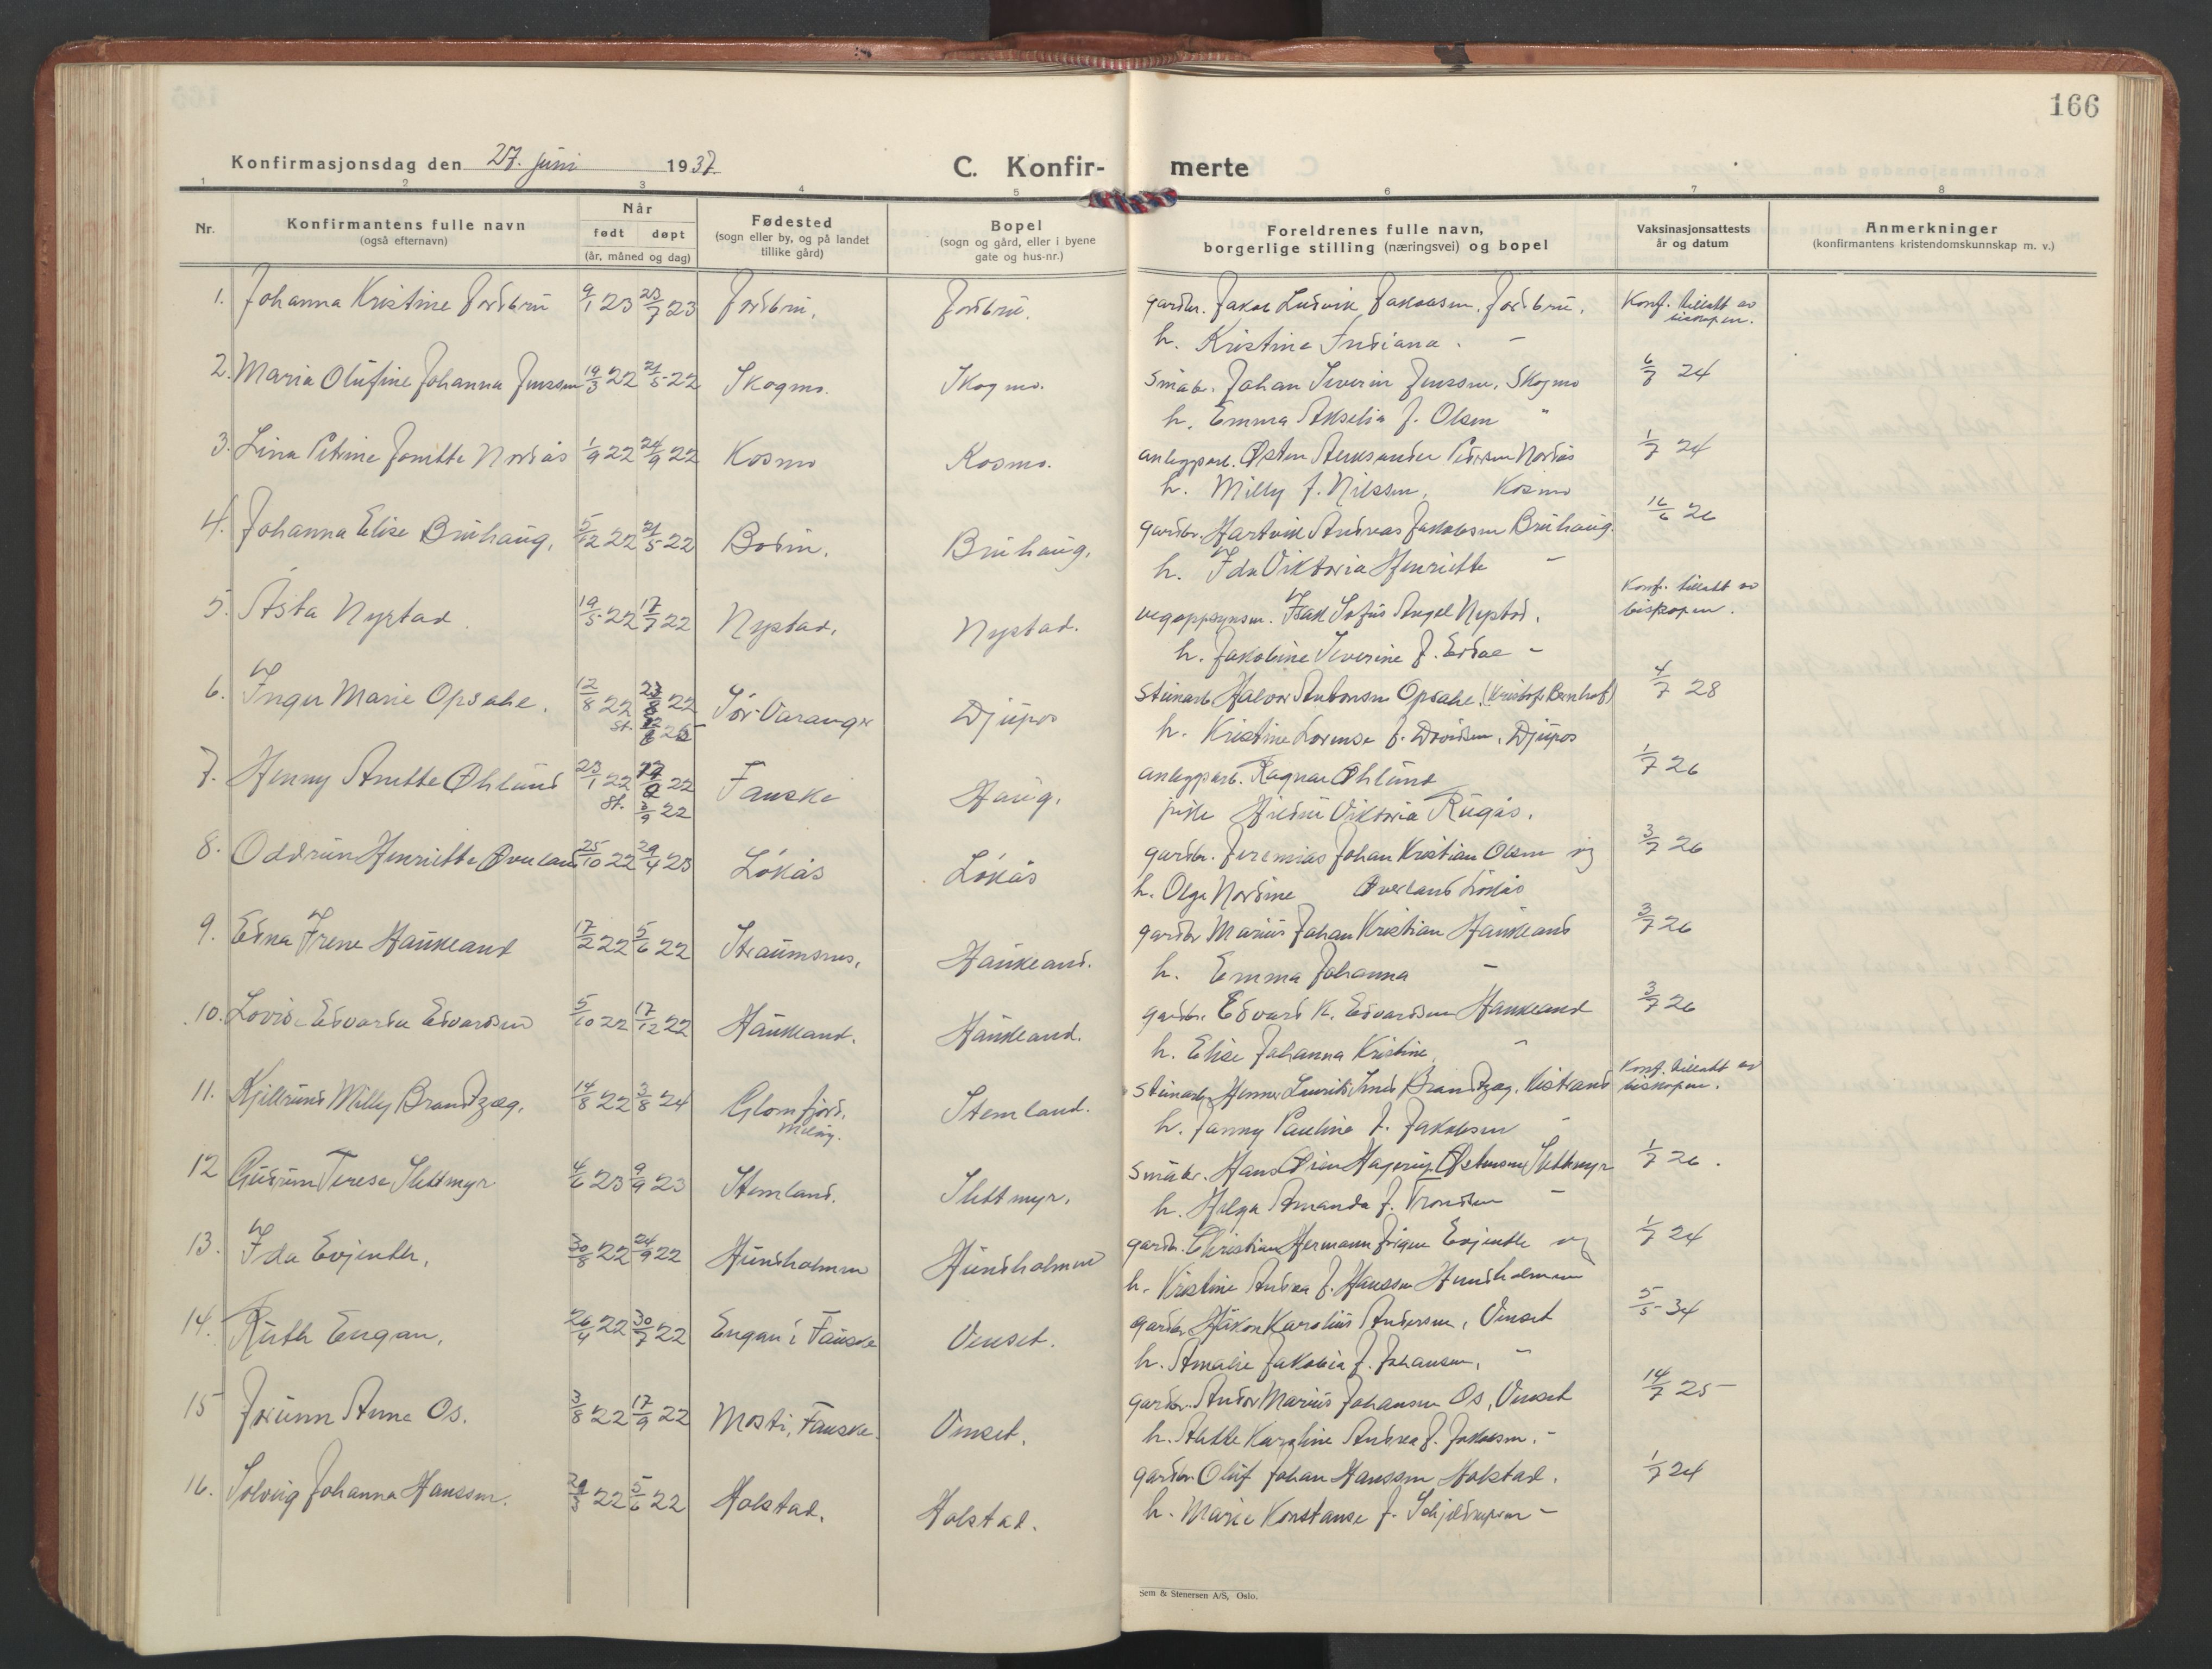 166
Konfirmasjonsdag den 27. juni 1937.
C. Konfir-merte
1 2 3 4 5 6 7 8
Nr.
Konfirmantens fulle navn
(også efternavn)
Når
født døpt
(år, måned og dag)
Fødested
(sogn eller by, og på landet
tillike gård)
Bopel
(sogn og gård, eller i byene
gate og hus-nr.)
Foreldrenes fulle navn,
borgerlige stilling (næringsvei) og bopel
Vaksinasjonsattests
år og datum
Anmerkninger
(konfirmantens kristendomskunnskap m. v.)
1. Johanna Kristine Jordbru 9/1 23 23/7 23 Jordbru. Jordbru. gardbr. Jakob Ludvik Jakobsen, Jordbru. Konf. tillatt av
biskopen.
h. Kristine Indiana. -
2. Maria Olufine Johanna Jenssen 19/3 22 21/5 22 Skogmo. Skogmo. småbr. Johan Severin Jenssen, Skogmo 6/7 24
h. Emma Akselia f. Olsen "
3. Lina Petrine Jonette Nordås 1/9 22 24/9 22 Kosmo Kosmo. anleggsarb. Østen Aleksander Pedersen Nordås 1/7 24
h. Milly f. Nilssen, Kosmo
4. Johanna Elise Bruhaug, 5/12 22 21/5 22 Bodin. Bruhaug. gardbr. Hartvik Andreas Jakobsen Bruhaug. 16/6 26
h. Ida Viktoria Henriette -
5. Åsta Nystad. 19/5 22 17/7 22 Nystad. Nystad. vegoppsynsm. Isak Sofus Angel Nystad. Konf. tillatt av
biskopen.
h. Jakobine Severine f. Erdal -
6. Inger Marie Opsahl. 12/8 22 22 Sør-Varanger Djupos steinarb. Halvor Antonsen Opsahl. (Kristofs Bernhof) 4/7 28
st.
h. Kristine Lorense f. Davidsen, Djupos
7. Henny Anette Øhlund 23/1 22 22 Fauske Haug. anleggsarb. Ragnar Øhlund 1/7 26
st. 3/9 22
pike Hildur Viktoria Rugås.
8. Oddrun Henriette Øverland 25/10 22 29/4 23 Løkås Løkås gardbr. Jeremias Johan Kristian Olsen og 3/7 26
h. Olga Nordine Øverland Løkås
9. Edna Irene Haukland 17/2 22 5/6 22 Straumsnes. Haukland. gardbr Marius Johan Kristian Haukland 3/7 26
h. Emma Johanna -
10. Lovise Edvarda Edvardsen 5/10 22 17/12 22 Haukland. Haukland. gardbr. Edvard K. Edvardsen Haukland 3/7 26
h. Elise Johanna Kristine. "
11. Kjellrund Milly Brandtzæg. 14/8 22 3/8 24 Glomfjord. Stemland. steinarb. Henner Laurits Brandtzæg, Kistrand Konf. tillatt av
biskopen.
Meløy.
h. Fanny Pauline f. Jakobsen -
12 Gudrun Terese Slettmyr 4/6 23 9/9 23 Stemland. Slettmyr. småbr. Hans Hagerup Slettmyr 1/7 26.
h. Helga Amanda f. Trondsen -
13. Ida Evjenth, 30/8 22 24/9 22 Hundholmen Hundholmen gardbr. Christian Hermann Evjenth og 1/7 24
h. Kristine Andrea f. Hanssen Hundholmen
14. Ruth Engan, 26/4 22 30/7 22 Engan i Fauske Venset. gardbr. Håkon Karolius Andersen, Venset 5/5 34
h. Amalie Jakobia f. Johansen, "
15 Jorunn Anne Os. 3/8 22 17/9 22 Mosti, Fauske. Venset. gardbr. Andor Marius Johansen Os, Venset 14/7 25
h. Alette Karoline Andrea f. Jakobsen. -
16. Solveig Johanna Hanssen. 29/3 22 5/6 22 Holstad. Holstad. gardbr. Oluf Johan Hanssen Holstad. 1/7 24
h. Marie Konstanse f. Schjelderupsen -
Sem & Stenersen A/S, Oslo.